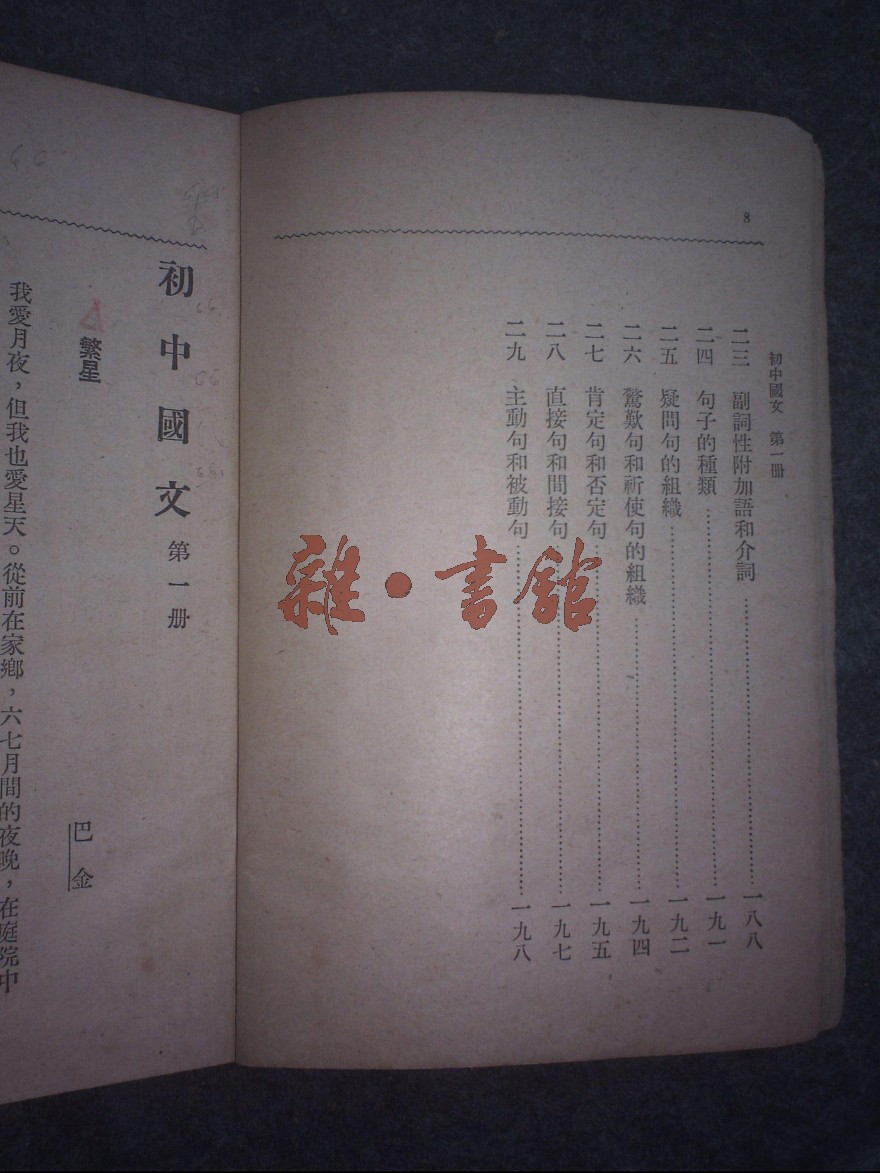 8
初中國文　第一册
二三　副詞性附加語和介詞……………一八八
二四　句子的種類……………一九一
二五　疑問句的組織……………一九二
二六　驚歎句和祈使句的組織……………一九四
二七　肯定句和否定句……………一九五
二八　直接句和間接句……………一九七
二九　主動句和被動句……………一九八
雜·書館
初中國文　第一册
繁星　巴金
我愛月夜，但我也愛星天。從前在家鄉，六七月間的夜晚，在庭院中